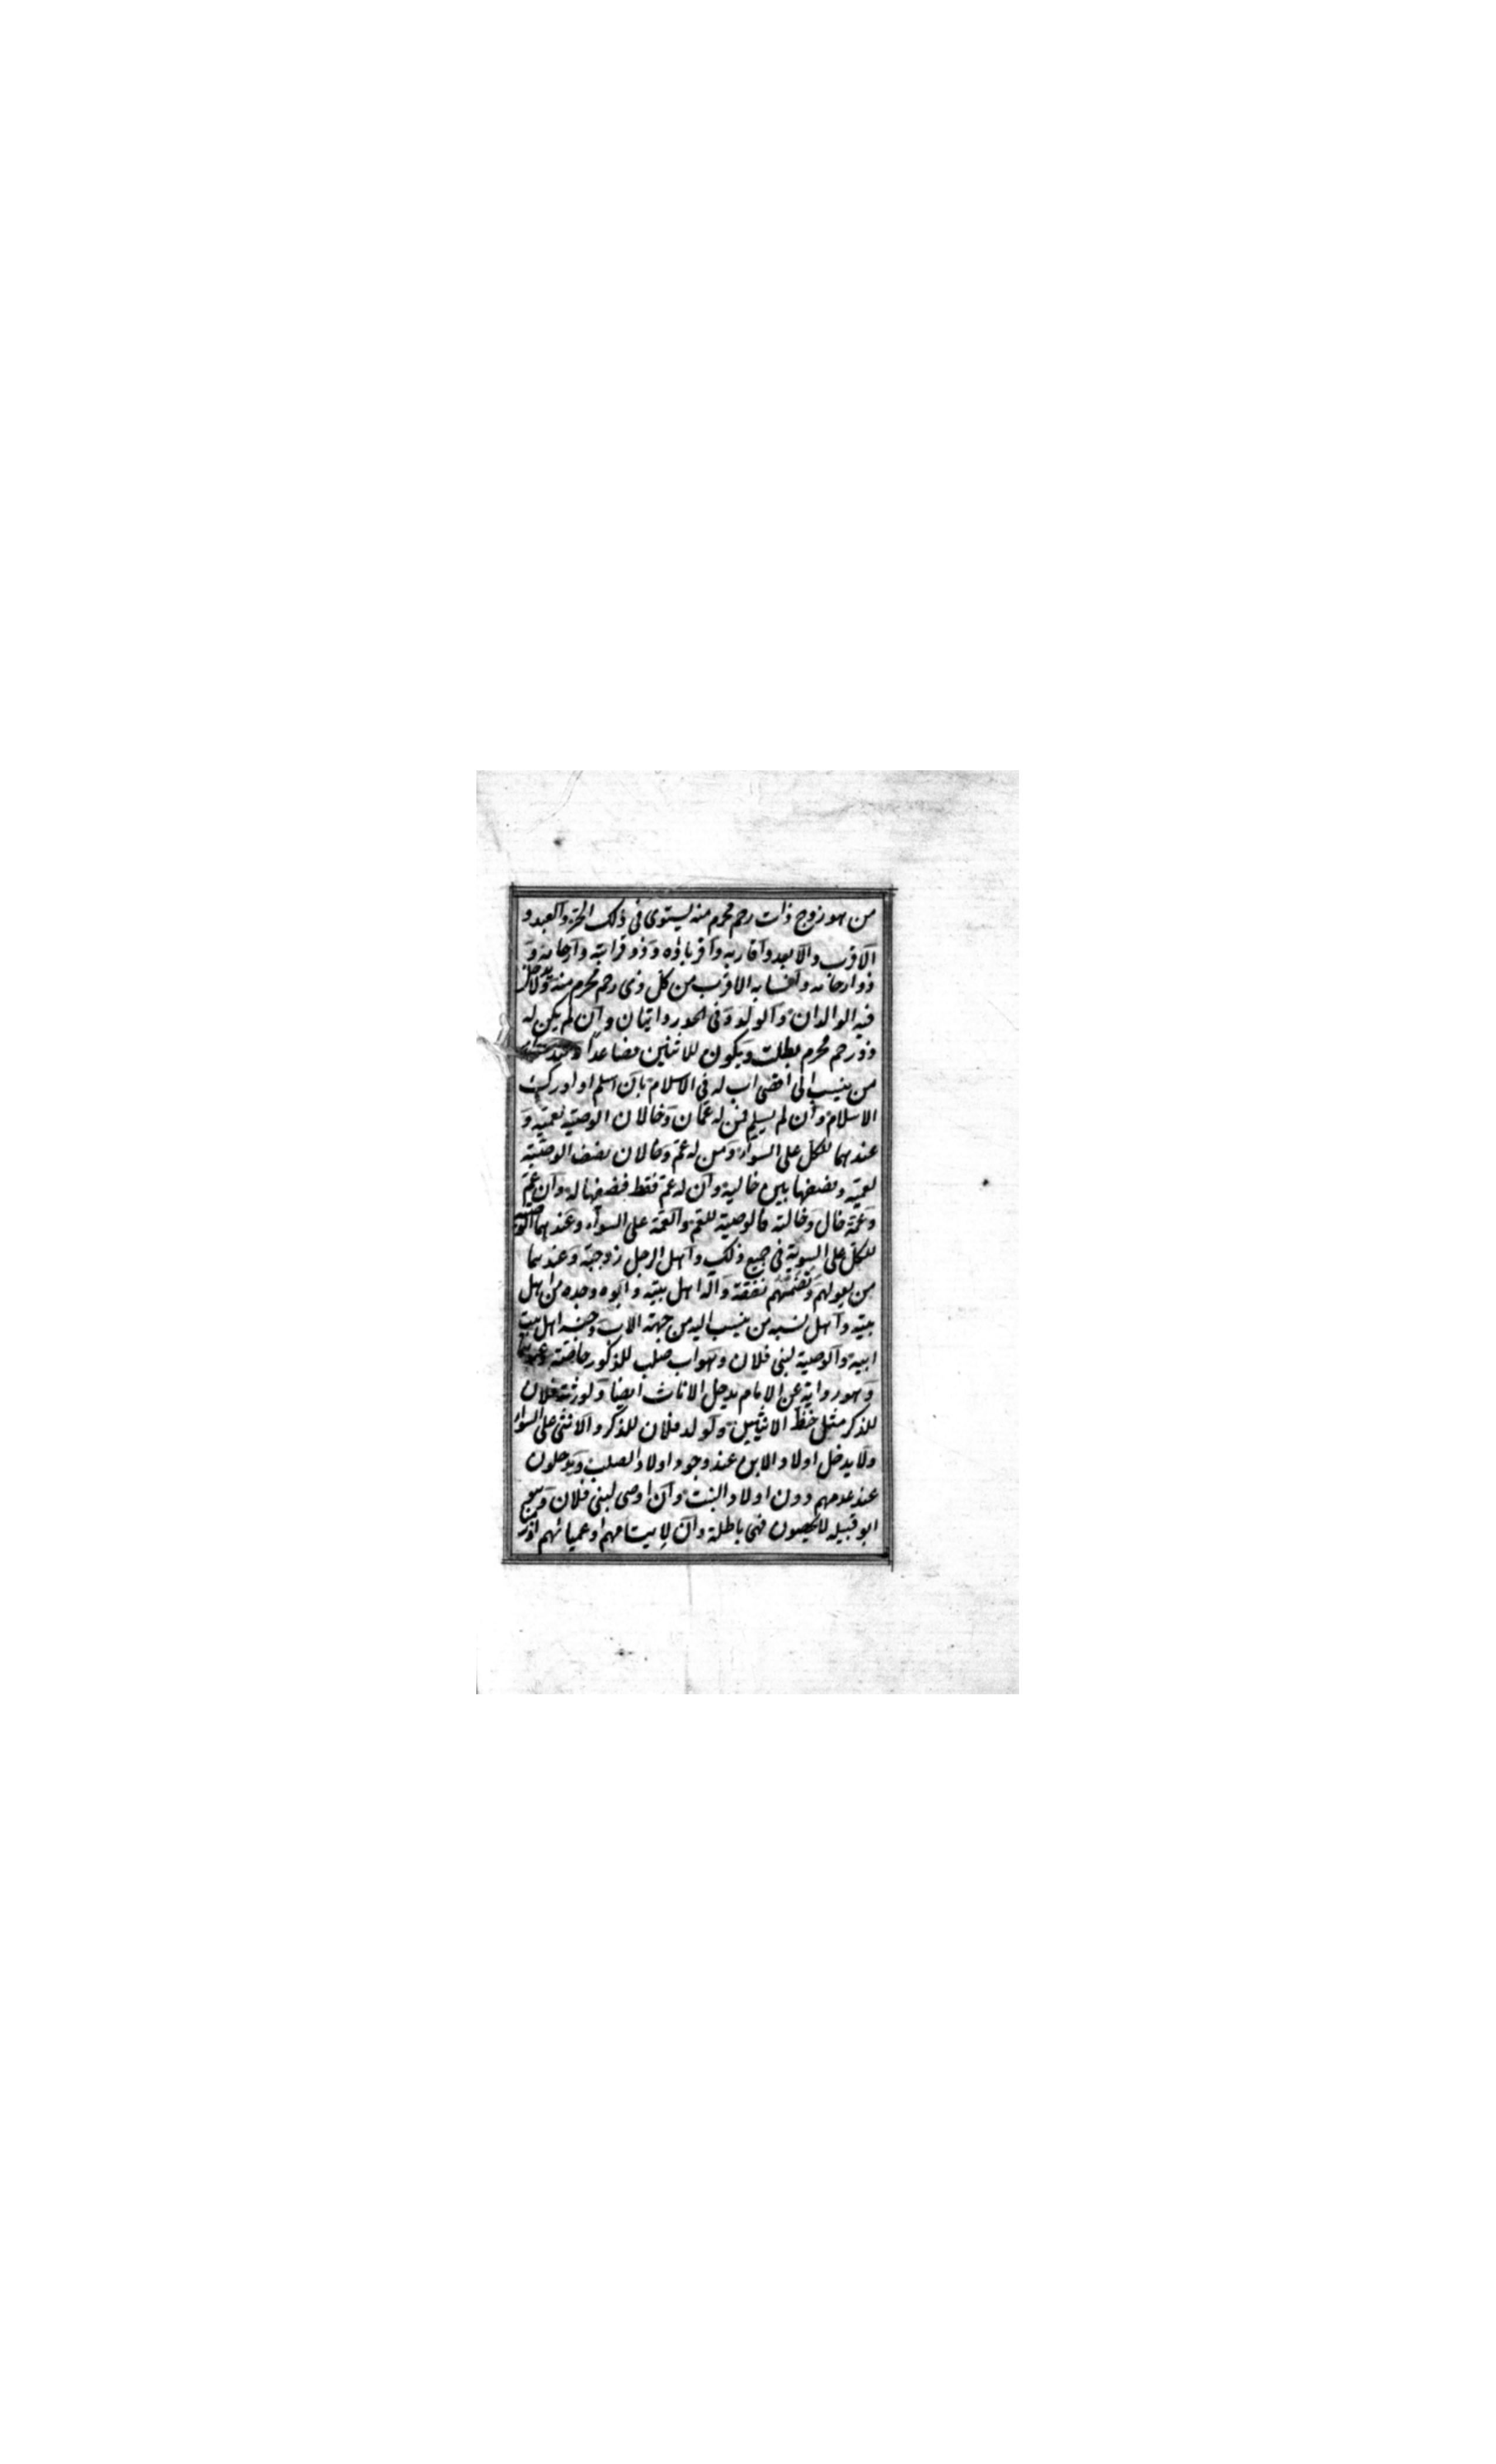 من هو زوج ذات رحم محرم منه يستوى فى ذلك الحر والعبد و
الاقرب والابعد واقاربه واقرباؤه وذو قرابته وارحامه و
ذوارحامه وانسابه الاقرب من كل ذى رحم محرم منه ولا يدخل
فيه الوالدان والولد وفى الجد روايتان وان لم يكن له
ذو رحم محرم بطلت ويكون للاثنين فصاعدا وعندهما
من ينسب الى اقصى اب له فى الاسلام بان اسلم او ادرك
الاسلام وان لم يسلم فمن له عمان وخالان الوصية لعميه و
عندهما للكل على السواء ومن له عم وخالان نصف الوصية
لعمه ونصفها بين خاليه وان له عم فقط فنصفها له وان عم
وعمة وخال وخالة فالوصية للعم والعمة على السواء وعندهما الوصية
للكل على السوية فى جميع ذلك واهل الرجل زوجته وعندهما
من يعولهم وتضمهم نفقته وآله اهل بيته وابوه وجده من اهل
بيته واهل نسبه من ينسب اليه من جهة الاب وجنسه اهل بيت
ابيه والوصية لبنى فلان وهو اب صلب للذكور خاصة وعندهما
وهو رواية عن الامام يدخل الاناث ايضا ولورثة فلان
للذكر مثل حظ الانثيين ولولد فلان للذكر والانثى على السواء
ولا يدخل اولاد الابن عند وجود اولاد الصلب ويدخلون
عند عدمهم دون اولاد البنت وان اوصى لبنى فلان وهو
ابو قبيلة لا يحصون فهى باطلة وان لايتامهم او عميانهم او زمناهم